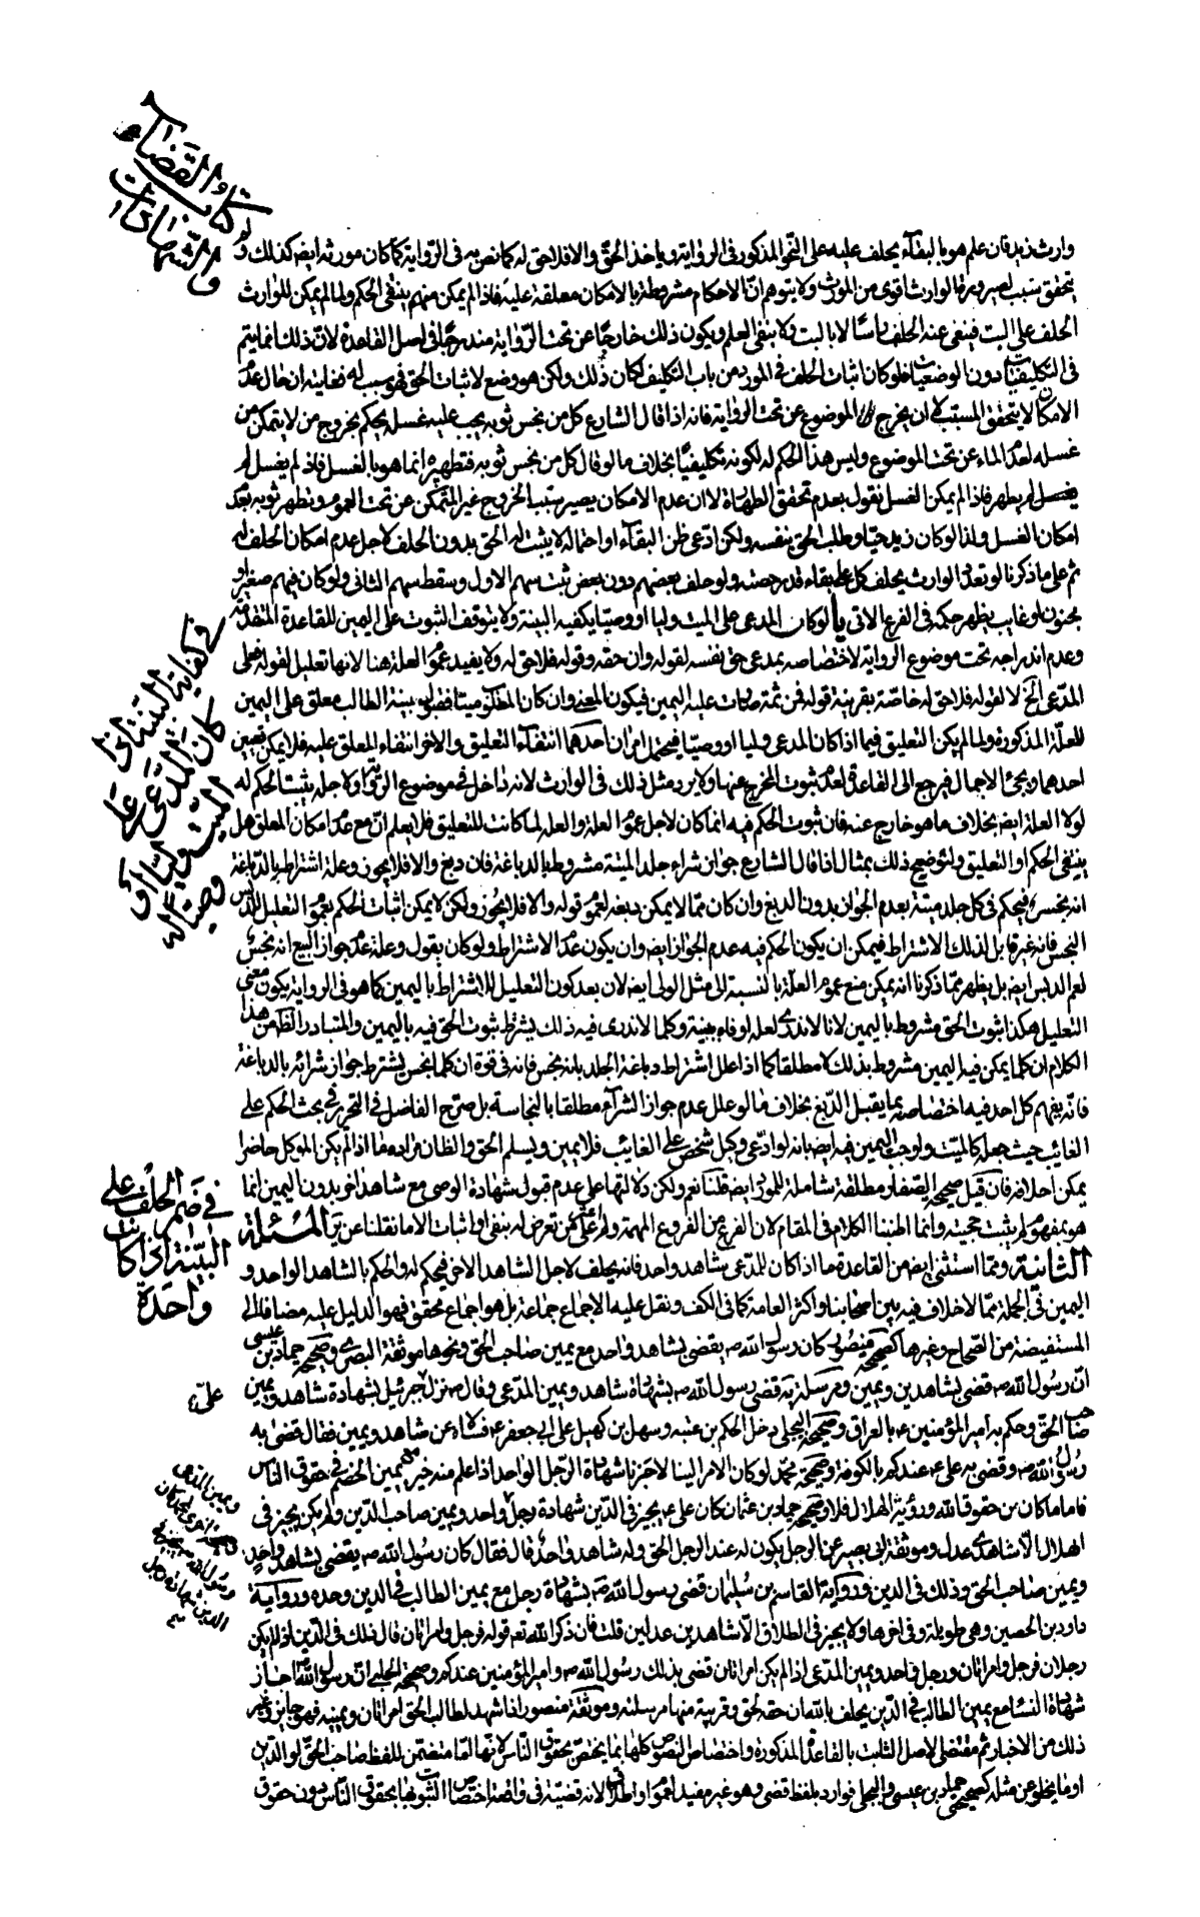 كتاب القضاء
والشهادات
وارث زيد فان علم هو بالبقاء يحلف عليه على النحو المذكور فى الرواية و ياخذ الحق والا فلا حق له كما نص به فى الرواية كما كان مورثه ايض كذلك و
يتحقق بسبب اصير ورة الوارث اقوى من المورث ولا يتوهم ان الاحكام مشروطة بالامكان معلقة عليه فاذا لم يمكن منهم ينتفى الحكم ولما لم يمكن للوارث
الحلف على البت فينفى عنه الحلف راسًا لا بالبت ولا بنفى العلم ويكون ذلك خارجًا عن تحت الرواية مندرجًا فى اصل القاعدة لان ذلك انما يتم
فى التكليفيات دون الوضعيات فلو كان اثبات الحلف فى المورد من باب التكليف لكان ذلك ولكن هو وضع لاثبات الحق فهو سبب له فغايته ان حال عدم
الامكان لا يتحقق المسبب لا ان يخرج الموضوع عن تحت الرواية فانه اذا قال الشارع كل من نجس ثوبه يجب عليه غسله يحكم بخروج من لا يتمكن من
غسله لعدم الماء عن تحت الموضوع وليس هذا الحكم له لكونه تكليفيًا بخلاف ما لو قال كل من نجس ثوبه فتطهيره انما هو بالغسل فاذا لم يغسل لم
يطهر فاذا لم يمكن الغسل نقول بعدم تحقق الطهارة لا ان عدم الامكان يصير سببا لخروج غير المتمكن عن تحت العموم وتطهر ثوبه بعدم
امكان الغسل ولذا لو كان زيد حيّا وطلب الحق بنفسه ولكن ادّعى ظن البقاء او احتماله لا يثبت له الحق بدون الحلف لاجل عدم امكان الحلف له
ثم على ما ذكرنا لو تعدد الوارث يحلف كل على بقاء قدر حصته ولو حلف بعضهم دون بعض ثبت سهم الاول وسقط سهم الثانى ولو كان فيهم صغير او
مجنون او غايب يظهر حكمه فى الفرع الاتى يا لو كان المدعى على الميت وليا او وصيّا يكفيه البينة ولا يتوقف الثبوت على اليمين للقاعدة المتقدمة
وعدم اندراجه تحت موضوع الرواية لاختصاصه بمدعى حق نفسه لقوله وان حقه وقوله فلا حق له ولا يفيد عموم العلة هنا لانها تعليل لقوله فعلى
المدعى الخ لا لقوله فلا حق له خاصة بقرينة قوله فمن ثمة صارت عليه اليمين فيكون المعنى وان كان المطلوب ميتا فقبول بينة الطالب معلق على اليمين
للعلة المذكورة ولما لم يكن التعليق فيما اذا كان المدعى وليا او وصيّا فيحتمل امران احدهما انتفاء التعليق والاخر انتفاء المعلق عليه فلا يمكن تعيين
احدهما ويجئ الاجمال فيرجع الى القاعدة لعدم ثبوت المخرج عنها ولا يرد مثل ذلك فى الوارث لانه داخل فى موضوع الرواية ولاجله يثبت الحكم له
لولا العلة ايض بخلاف ما هو خارج عنه فان ثبوت الحكم فيه انما كان لاجل عموم العلة والعلة لما كانت للتعليق فلا يعلم ان مع عدم امكان المعلق هل
ينتفى الحكم او التعليق ولنوضح ذلك بمثال اذا قال الشارع جواز شراء جلد الميتة مشروط بالدباغة فان دبغ والا فلا يجوز وعلة اشتراطه بالدباغة
انه نجس فيحكم فى كل جلد ميتة بعدم الجواز بدون الدبغ وان كان مما لا يمكن دبغه لعموم قوله والا فلا يجوز ولكن لا يمكن اثبات الحكم بعموم التعليل للدبس
النجس فانه غير قابل لذلك الاشتراط فيمكن ان يكون الحكم فيه عدم الجواز ايض وان يكون عدم الاشتراط ولو كان يقول وعلة عدم جواز البيع انه نجس
لعم الدبس ايض بل يظهر مما ذكرنا انه يمكن منع عموم العلة بالنسبة الى مثل الولى ايض لان بعد كون التعليل للاشتراط باليمين كما هو فى الرواية يكون معنى
التعليل هكذا ثبوت الحق مشروط باليمين لانا لا ندرى لعله اوفاه ببينة وكلما لا ندرى فيه ذلك يشترط ثبوت الحق فيه باليمين والمتبادر الظاهر من هذا
الكلام ان كلما يمكن فيه اليمين مشروط بذلك لا مطلقا كما اذا علل اشتراط دباغة الجلد بانه نجس فانه فى قوة ان كلما نجس يشترط جواز شرائه بالدباغة
فانه يفهم كل احد فيه اختصاصه بما يقبل الدبغ بخلاف ما لو علل عدم جواز الشراء مطلقا بالنجاسة بل صرح الفاضل فى التحرير فى بحث الحكم على
الغائب حيث جعله كالميت ولوجب اليمين فيه ايض بانه لو ادّعى وكيل شخص على الغايب فلا يمين ويسلم الحق والظان مراده ما اذا لم يكن الموكل حاضرا
يمكن احلافه فان قيل صحيحة الصفار مطلقة شاملة للمورد ايض قلنا نعم ولكن دلالتها على عدم قبول شهادة الوصى مع شاهد اخر بدون اليمين انما
هو بمفهوم لم يثبت حجيته وانما اطنبنا الكلام فى المقام لان الفرع من الفروع المهمة ولم اعثر على من تعرض له بنفى او اثبات الا ما نقلنا عن ير المسئلة
الثانية ومما استثنى ايض من القاعدة ما اذا كان للمدعى شاهد واحد فانه يحلف لاجل الشاهد الاخر فيحكم له والحكم بالشاهد الواحد و
اليمين فى الجملة مما لا خلاف فيه بين اصحابنا واكثر العامة كما فى الكف ونقل عليه الاجماع جماعة بل هو اجماع محقق فهو الدليل عليه مضافا الى
المستفيضة من الصحاح وغيرها كصحيحة منصور كان رسول الله ص يقضى بشاهد واحد مع يمين صاحب الحق ونحوها موثقة البصرى وصحيحة حماد بن عيسى
ان رسول الله ص قضى بشاهد ويمين ومرسلة يه قضى رسول الله ص بشهادة شاهد ويمين المدعى وقال ص نزل جبرئيل بشهادة شاهد ويمين
صاحب الحق وحكم به امير المؤمنين ع بالعراق وصحيحة البجلى دخل الحكم بن عتبه وسهل بن كهيل على ابى جعفر ع فسئلاه عن شاهد ويمين فقال قضى به
رسول الله ص وقضى به على ع عندكم بالكوفة وصحيحة محمد لو كان الامر الينا لاجزنا شهادة الرجل الواحد اذا علم منه خير مع يمين الخصم فى حقوق الناس
فاما ما كان من حقوق الله ورؤية الهلال فلا وصحيحة حماد بن عثمان كان على ع يجيز فى الدين شهادة رجل واحد ويمين صاحب الدين ولم يكن يجيز فى
الهلال الا شاهدى عدل وموثقة ابى بصير عن الرجل يكون له عند الرجل الحق وله شاهد واحد قال فقال كان رسول الله ص يقضى بشاهد واحد
ويمين صاحب الحق وذلك فى الدين ورواية القاسم بن سليمان قضى رسول الله ص بشهادة رجل مع يمين الطالب فى الدين وحده ورواية
داود بن الحصين وهى طويلة وفى اخرها ولا يجيز فى الطلاق الا شاهدين عدلين قلت فان ذكر الله تعه قوله فرجل وامراتان قال ذلك فى الدين اذا لم يكن
رجلان فرجل وامراتان ورجل واحد ويمين المدعى اذا لم يكن امراتان قضى بذلك رسول الله ص وامير المؤمنين عندكم وصحيحة الحلبى ان رسول الله ص اجاز
شهادة النساء مع يمين الطالب فى الدين يحلف بالله ان حقه لحق وقريبة منها مرسلته وموثقة منصور اذا شهد لطالب الحق امراتان ويمينه فهو جايز وغير
ذلك من الاخبار ثم مقتضى الاصل الثابت بالقاعدة المذكورة واختصاص النصوص كلها بما يختص بحقوق الناس لانها اما متضمن للفظ صاحب الحق او الدين
او ما يخلو عن مثله كصحيحتى حماد بن عيسى والبجلى فوارد بلفظ قضى وهو غير مفيد لعموم او اطلاق لانه قضية فى واقعة اختصاص الثبوت بها بحقوق الناس دون حقوق
فى كفاية البينة اذا
كان المدعى على
الميت وليّا او
وصيّا له
فى ضم الحلف على
البينة اذا كانت
واحدة
على ع